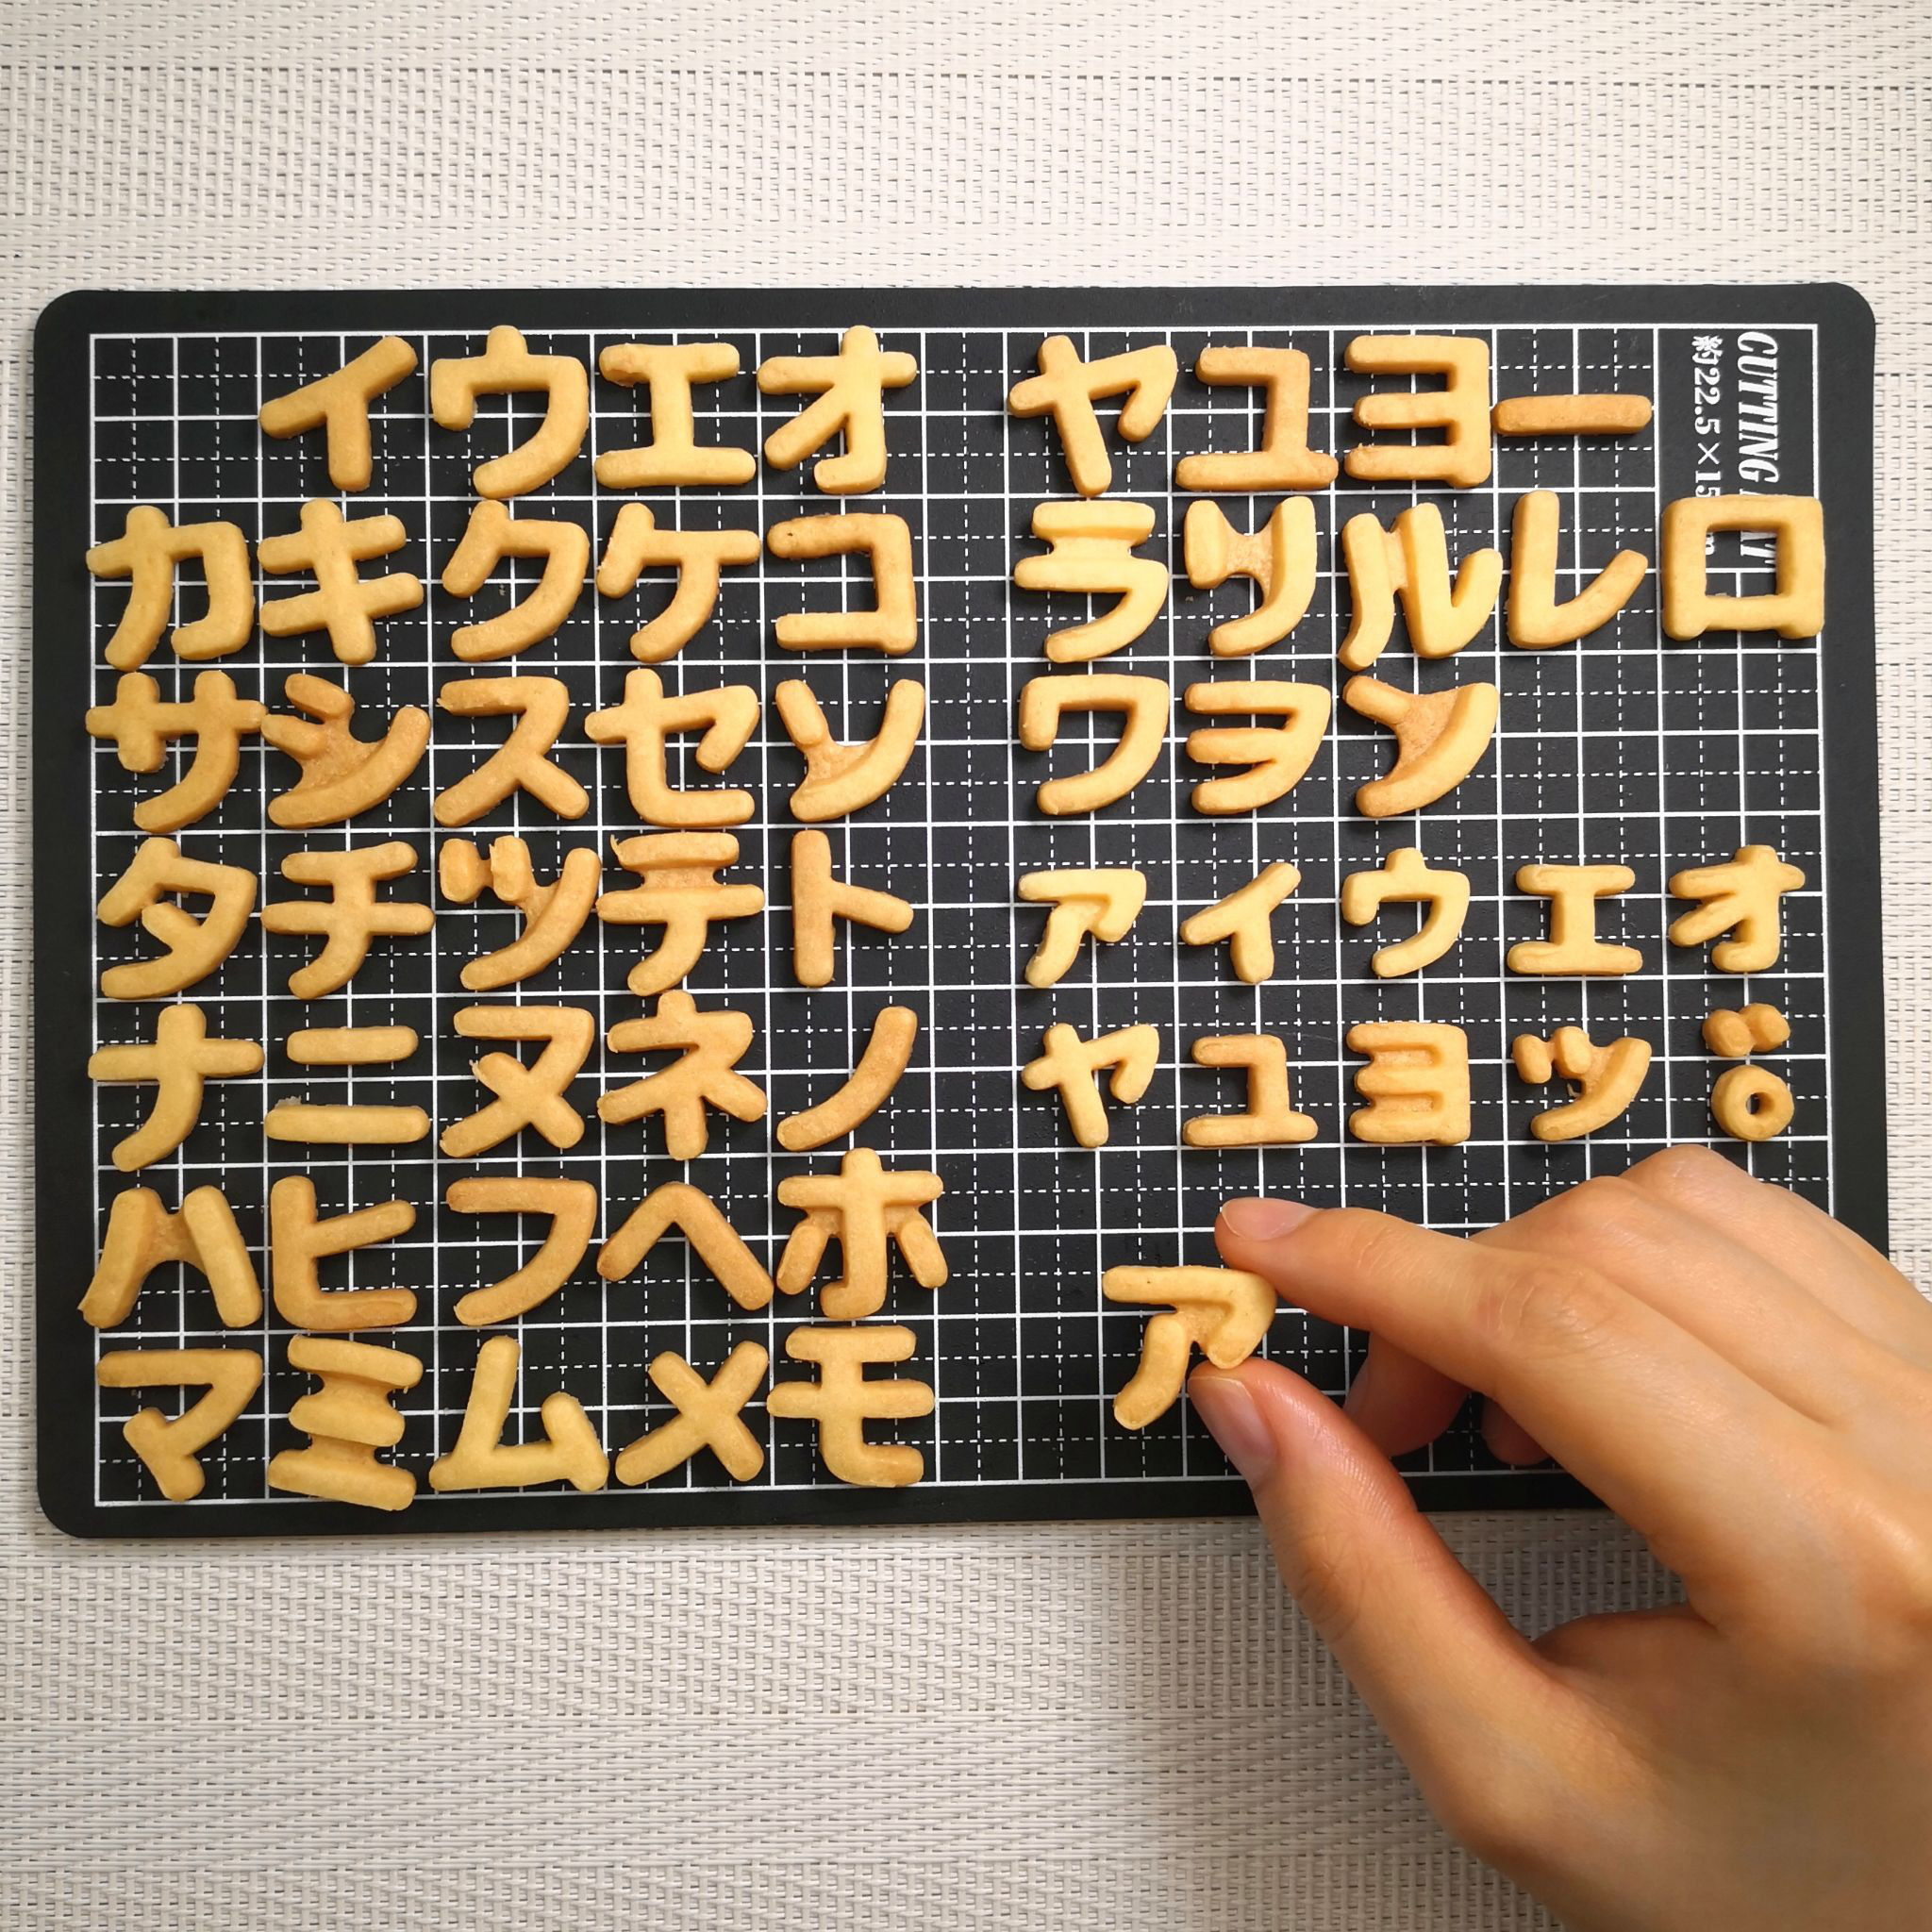 イウエオ
カキクケコ
サシスセソ
タチツテト
ナニヌネノ
ハヒフヘホ
マミムメモ
ヤユヨー
ラリルレロ
ワヲン
ァィゥェォ
ャュョッ゛゜
ア
CUTTING
約22.5×15